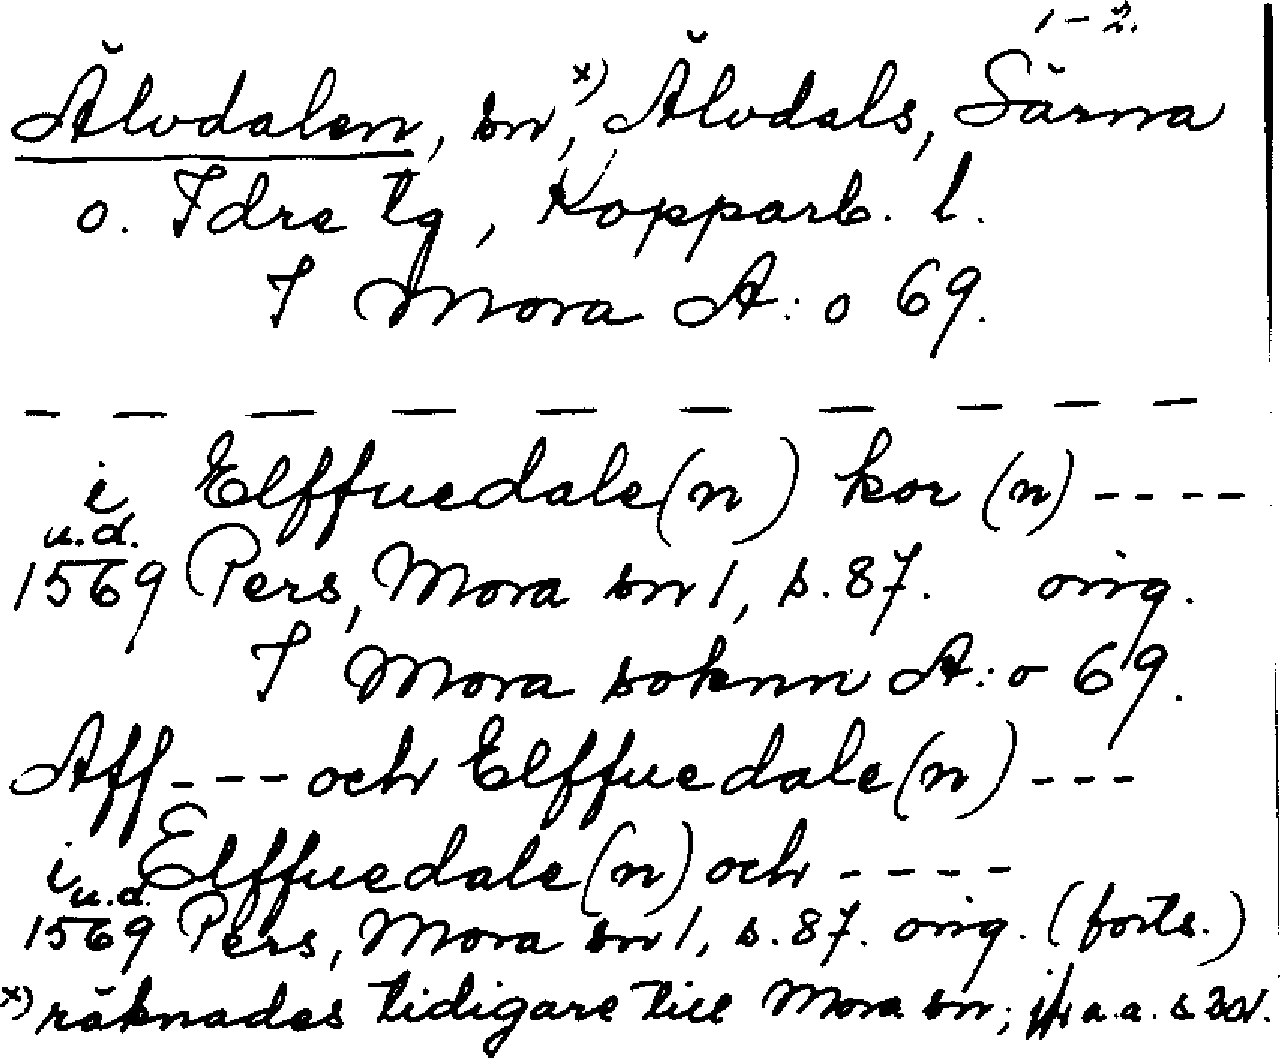 1-2.
Älvdalen, sn,x) Älvdals, Särna
o. Idre tg, Kopparb. l.
I Mora A:o 69.
- - - - - - - - - -
i Elffuedale(n) kor (n) - - - -
u.d.
1569 Pers, Mora sn 1, s. 87. orig.
I Mora soknn A:o 69.
Aff - - - och Elffuedale(n) - - -
i Elffuedale(n) och - - - -
u.d.
1569 Pers, Mora sn 1, s. 87. orig. (forts.)
x) räknades tidigare till Mora sn; jfr a.a. s